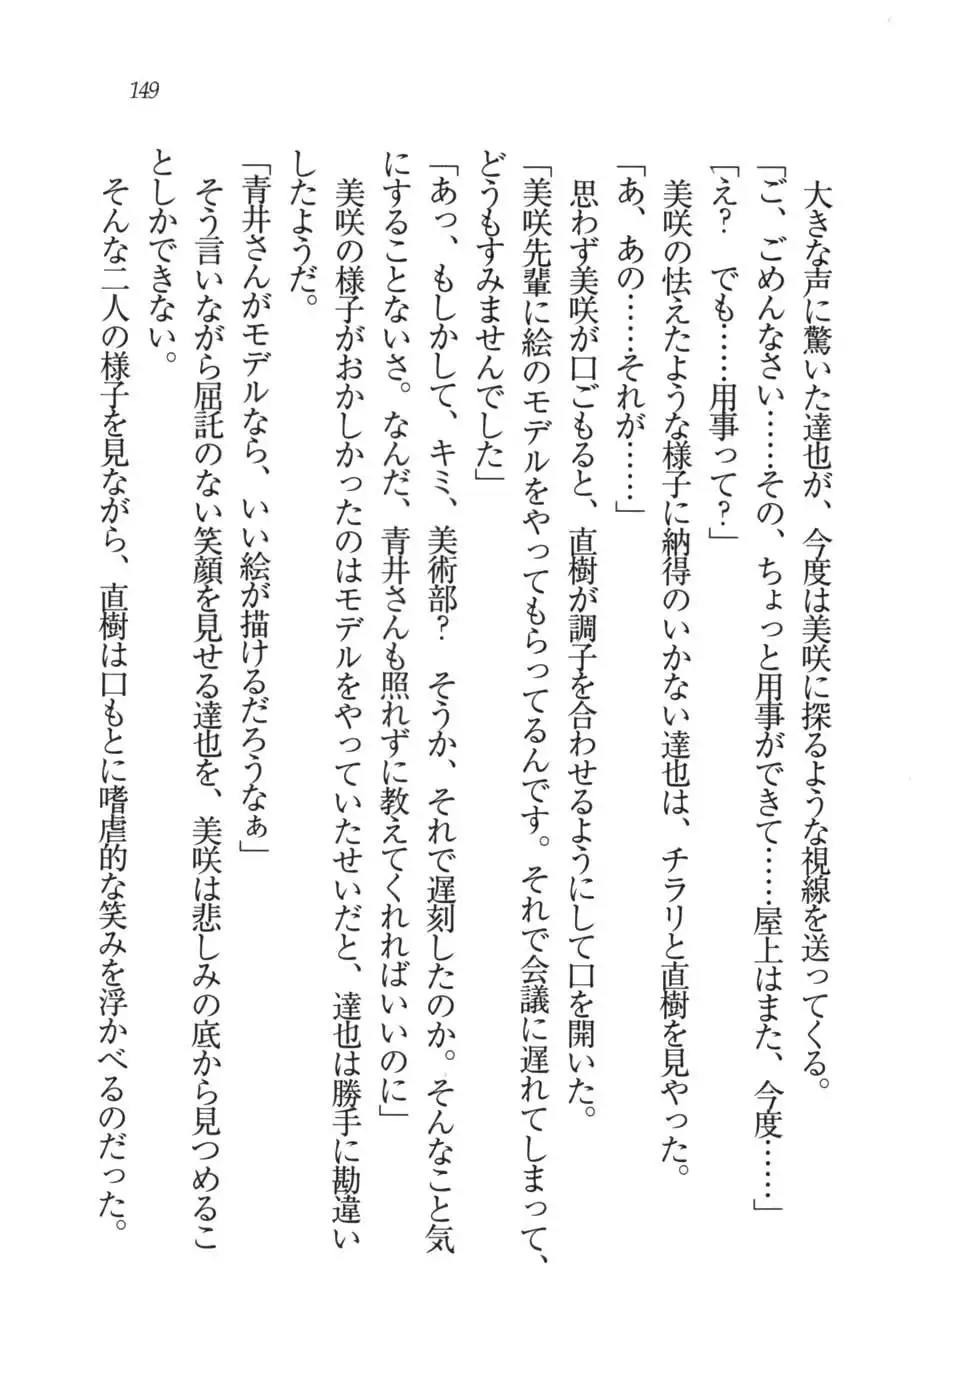 149
大きな声に驚いた達也が、今度は美咲に探るような視線を送ってくる。
「ご、ごめんなさい……その、ちょっと用事ができて……屋上はまた、今度……」
「え？　でも……用事って？」
美咲の怯えたような様子に納得のいかない達也は、チラリと直樹を見やった。
「あ、あの……それが……」
思わず美咲が口ごもると、直樹が調子を合わせるようにして口を開いた。
「美咲先輩に絵のモデルをやってもらってるんです。それで会議に遅れてしまって、
どうもすみませんでした」
「あっ、もしかして、キミ、美術部？　そうか、それで遅刻したのか。そんなこと気
にすることないさ。なんだ、青井さんも照れずに教えてくれればいいのに」
美咲の様子がおかしかったのはモデルをやっていたせいだと、達也は勝手に勘違い
したようだ。
「青井さんがモデルなら、いい絵が描けるだろうなぁ」
そう言いながら屈託のない笑顔を見せる達也を、美咲は悲しみの底から見つめるこ
としかできない。
そんな二人の様子を見ながら、直樹は口もとに嗜虐的な笑みを浮かべるのだった。